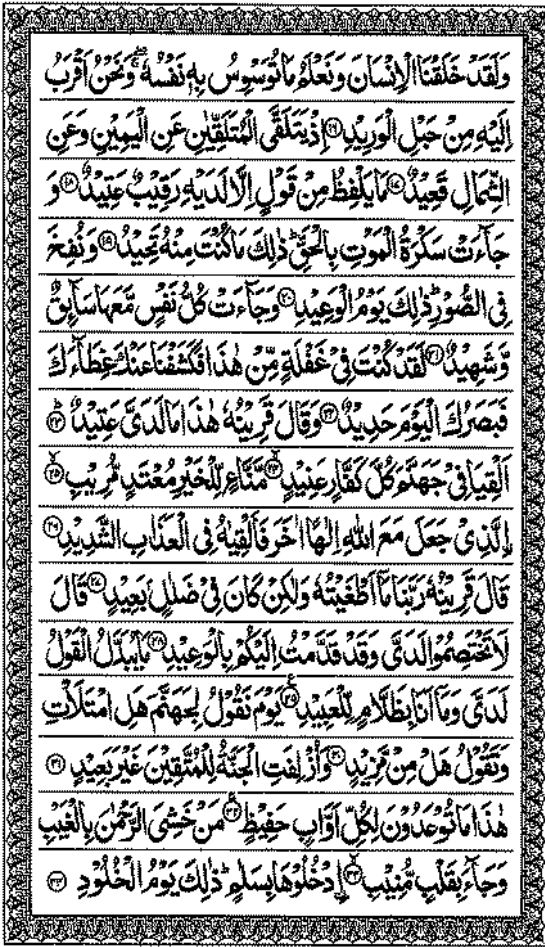 وَلَقَدْ خَلَقْنَا الْاِنْسَانَ وَنَعْلَمُ مَا تُوَسْوِسُ بِهٖ نَفْسُهٗ ۖۚ وَنَحْنُ اَقْرَبُ
اِلَيْهِ مِنْ حَبْلِ الْوَرِيْدِ ۝۱۶ اِذْ يَتَلَقَّى الْمُتَلَقِّيٰنِ عَنِ الْيَمِيْنِ وَعَنِ
الشِّمَالِ قَعِيْدٌ ۝۱۷ مَا يَلْفِظُ مِنْ قَوْلٍ اِلَّا لَدَيْهِ رَقِيْبٌ عَتِيْدٌ ۝۱۸ وَ
جَآءَتْ سَكْرَةُ الْمَوْتِ بِالْحَقِّ ؕ ذٰلِكَ مَا كُنْتَ مِنْهُ تَحِيْدُ ۝۱۹ وَنُفِخَ
فِى الصُّوْرِ ؕ ذٰلِكَ يَوْمُ الْوَعِيْدِ ۝۲۰ وَجَآءَتْ كُلُّ نَفْسٍ مَّعَهَا سَآئِقٌ
وَّشَهِيْدٌ ۝۲۱ لَقَدْ كُنْتَ فِىْ غَفْلَةٍ مِّنْ هٰذَا فَكَشَفْنَا عَنْكَ غِطَآءَكَ
فَبَصَرُكَ الْيَوْمَ حَدِيْدٌ ۝۲۲ وَقَالَ قَرِيْنُهٗ هٰذَا مَا لَدَىَّ عَتِيْدٌ ؕ۝۲۳
اَلْقِيَا فِىْ جَهَنَّمَ كُلَّ كَفَّارٍ عَنِيْدٍ ۙ۝۲۴ مَّنَّاعٍ لِّلْخَيْرِ مُعْتَدٍ مُّرِيْبِ ۙ۝۲۵
اِلَّذِىْ جَعَلَ مَعَ اللّٰهِ اِلٰهًا اٰخَرَ فَاَلْقِيٰهُ فِى الْعَذَابِ الشَّدِيْدِ ۝۲۶
قَالَ قَرِيْنُهٗ رَبَّنَا مَاۤ اَطْغَيْتُهٗ وَلٰكِنْ كَانَ فِىْ ضَلٰلٍۢ بَعِيْدٍ ۝۲۷ قَالَ
لَا تَخْتَصِمُوْا لَدَىَّ وَقَدْ قَدَّمْتُ اِلَيْكُمْ بِالْوَعِيْدِ ۝۲۸ مَا يُبَدَّلُ الْقَوْلُ
لَدَىَّ وَمَاۤ اَنَا بِظَلَّامٍ لِّلْعَبِيْدِ ۝۲۹ يَوْمَ نَقُوْلُ لِجَهَنَّمَ هَلِ امْتَلَاْتِ
وَتَقُوْلُ هَلْ مِنْ مَّزِيْدٍ ۝۳۰ وَاُزْلِفَتِ الْجَنَّةُ لِلْمُتَّقِيْنَ غَيْرَ بَعِيْدٍ ۝۳۱
هٰذَا مَا تُوْعَدُوْنَ لِكُلِّ اَوَّابٍ حَفِيْظٍ ۝۳۲ مَنْ خَشِىَ الرَّحْمٰنَ بِالْغَيْبِ
وَجَآءَ بِقَلْبٍ مُّنِيْبِ ۙ۝۳۳ اِدْخُلُوْهَا بِسَلٰمٍ ؕ ذٰلِكَ يَوْمُ الْخُلُوْدِ ۝۳۴